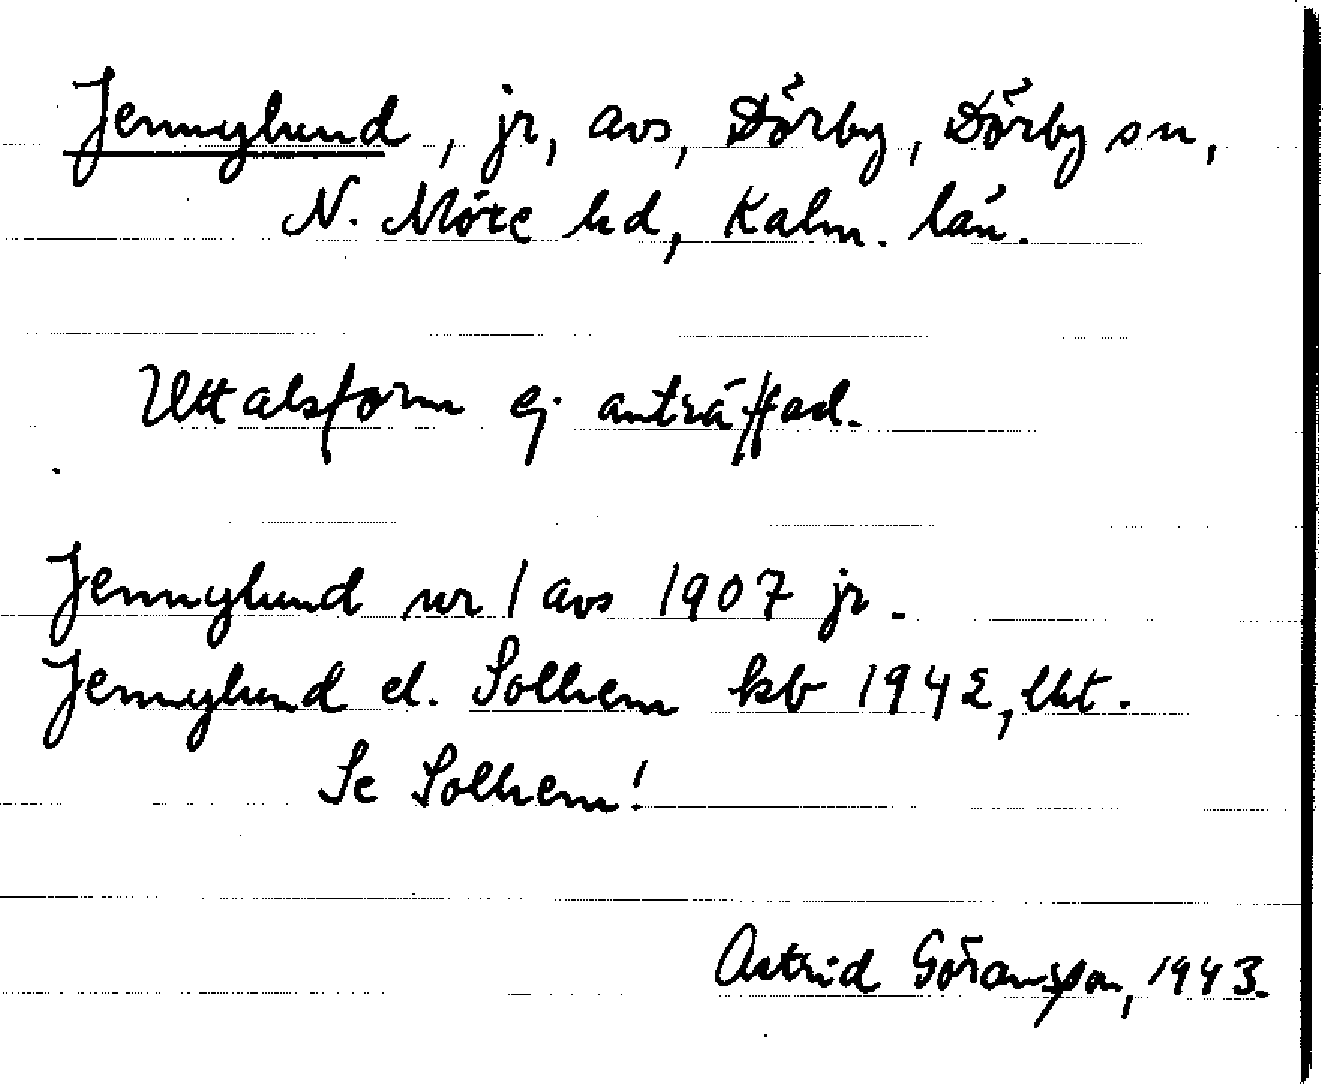 Jennylund, jr, avs, Dörby, Dörby sn,
N. Möre hd, Kalm. län.
Uttalsform ej anträffad.
Jennylund nr 1 avs 1907 jr.
Jennylund el. Solhem kb 1942, lkt.
Se Solhem!
Astrid Göransson, 1943.